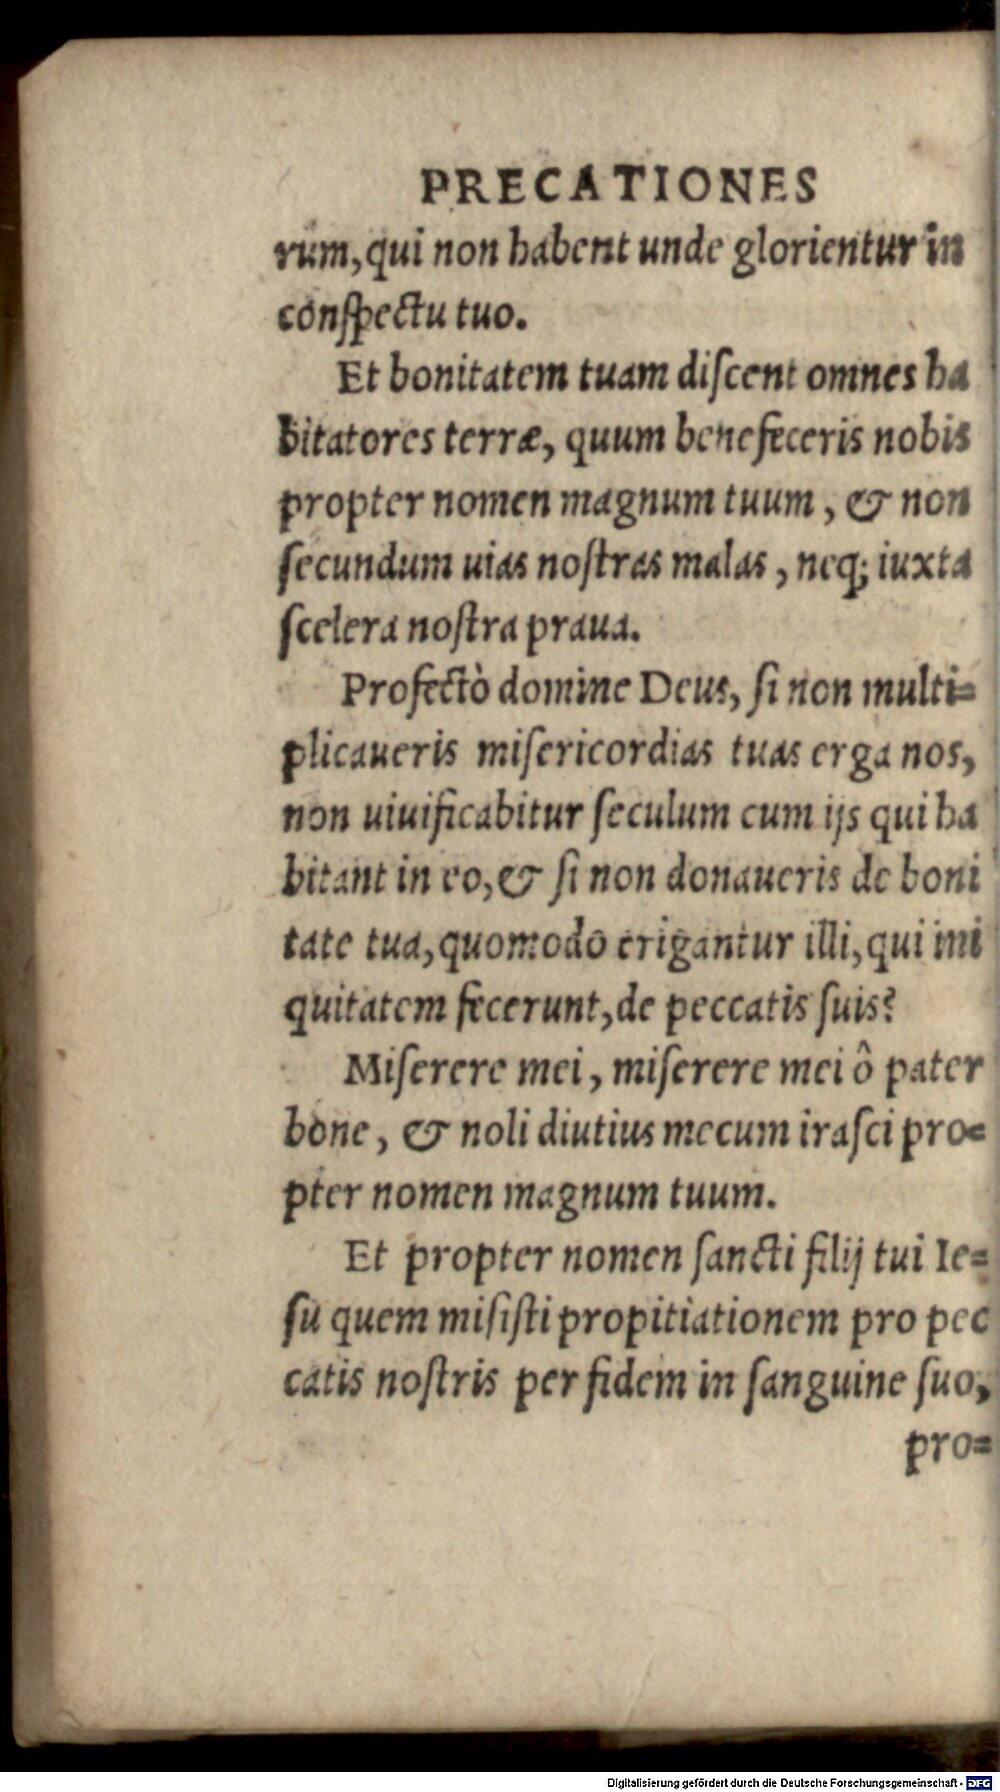 PRECATIONES
rum, qui non habent unde glorientur in
conſpectu tuo.
Et bonitatem tuam diſcent omnes ha
bitatores terræ, quum benefeceris nobis
propter nomen magnum tuum, & non
ſecundum uias noſtras malas, neq; iuxta
ſcelera noſtra praua.
Profectò domine Deus, ſi non multi=
plicaueris miſericordias tuas erga nos,
non uiuificabitur ſeculum cum ijs qui ha
bitant in eo, & ſi non donaueris de boni
tate tua, quomodo erigantur illi, qui ini
quitatem fecerunt, de peccatis ſuis?
Miſerere mei, miſerere mei ô pater
bone, & noli diutius mecum iraſci pro=
pter nomen magnum tuum.
Et propter nomen ſancti filij tui Ie=
ſu quem miſiſti propitiationem pro pec
catis noſtris per fidem in ſanguine ſuo,
pro=
Digitalisierung gefördert durch die Deutsche Forschungsgemeinschaft - DFG